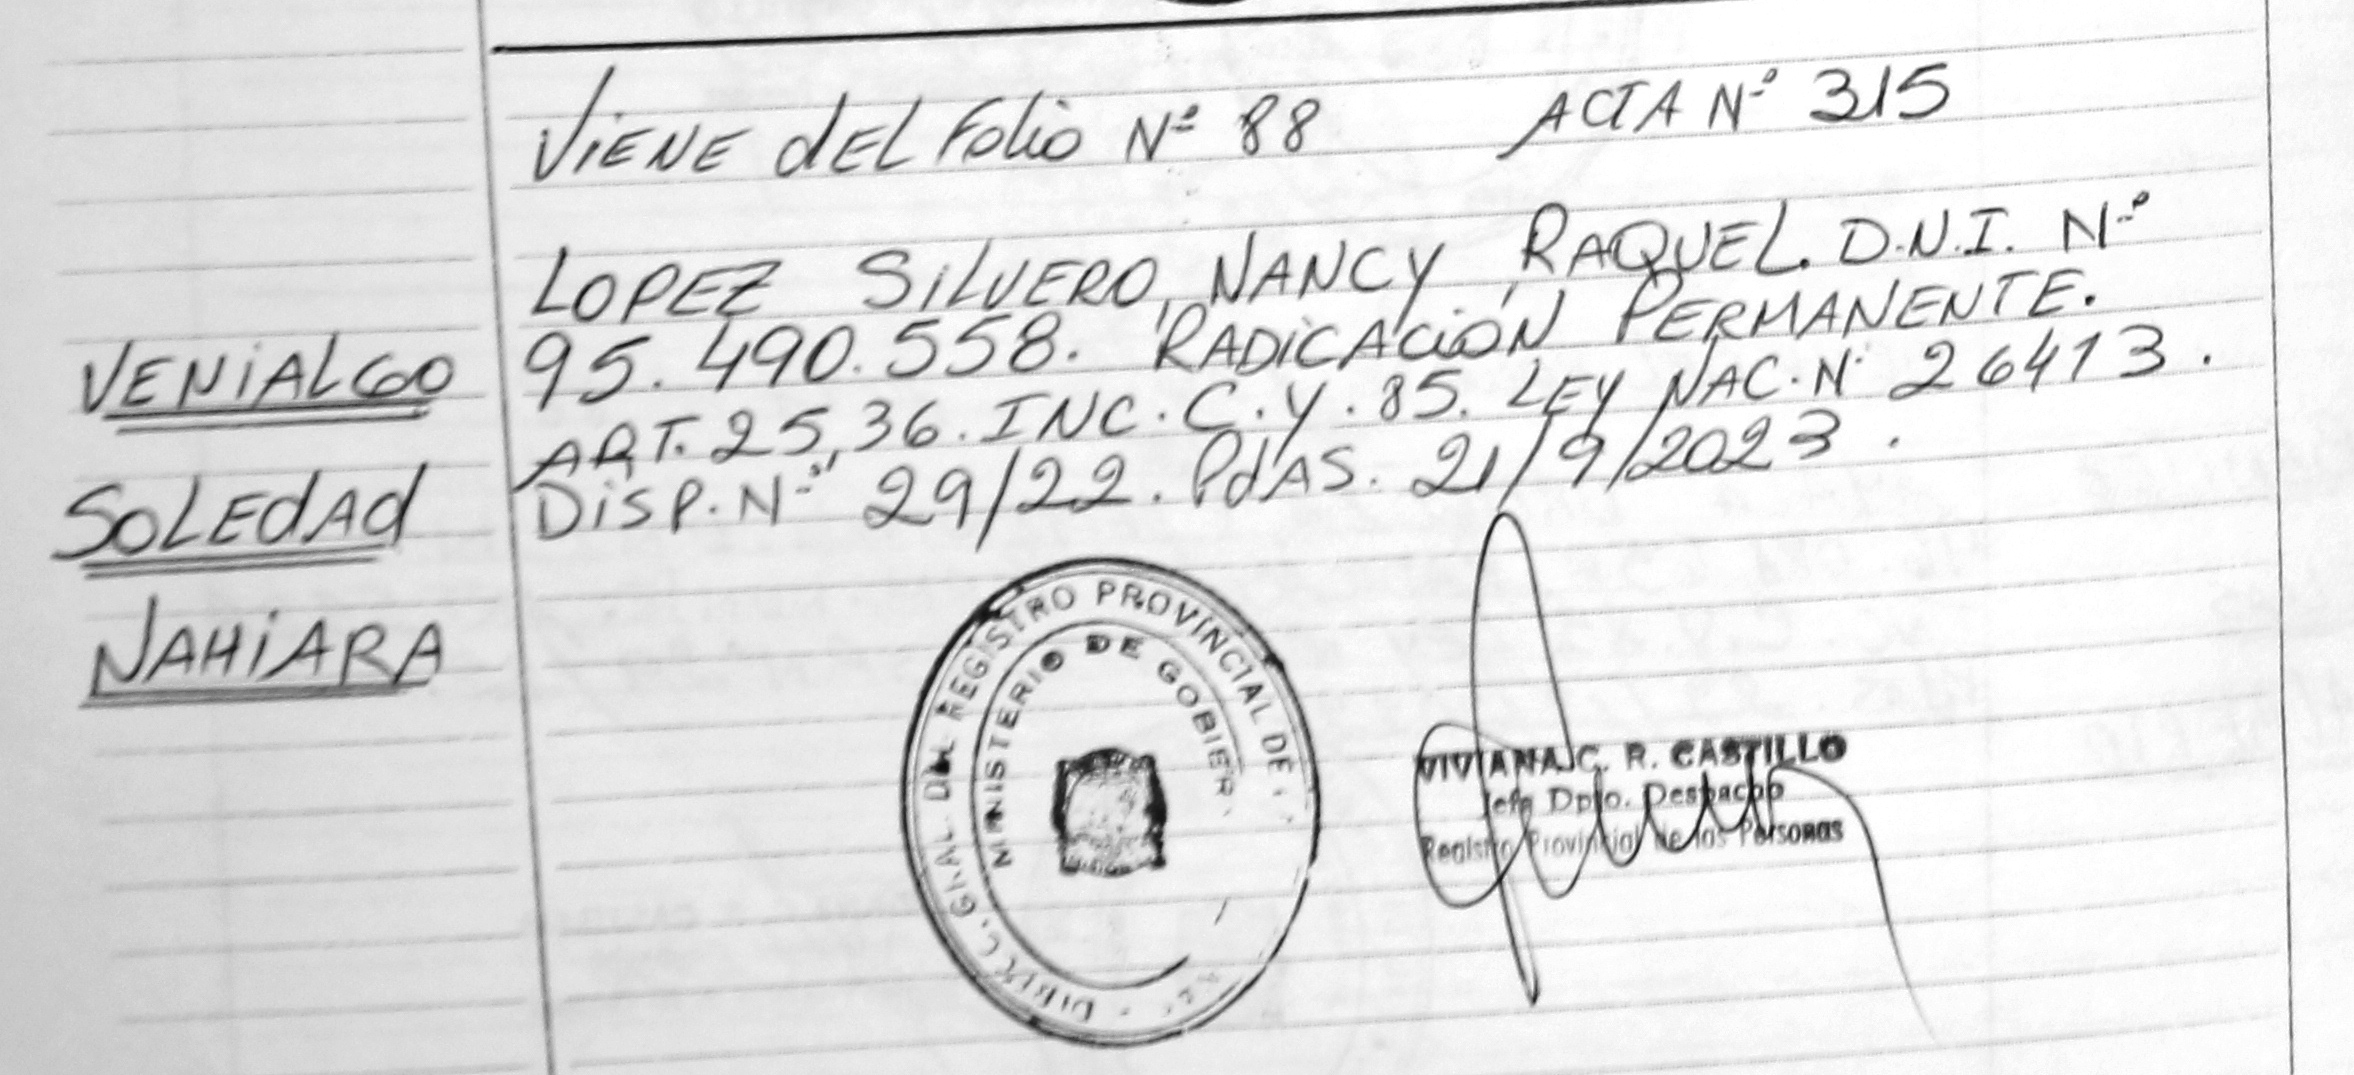 ViENE dEL Folio Nº 88 ACTA Nº 315
LOPEZ SiLVERO, NANCY RAQUEL. D.N.I. Nº
95.490.558. RADiCACiÓN PERMANENTE.
ART. 25, 36. INC. C. Y. 85. LEY NAC. Nº 26413.
DiSP. Nº 29/22. PdAS. 21/9/2023.
VENiALGO
SOLEdAd
NAHiARA
GRAL. DEL REGISTRO PROVINCIAL DE
MINISTERIO DE GOBIER
VIVIANA C. R. CASTILLO
Jefa Dpto. Despacho
Registro Provincial de las Personas